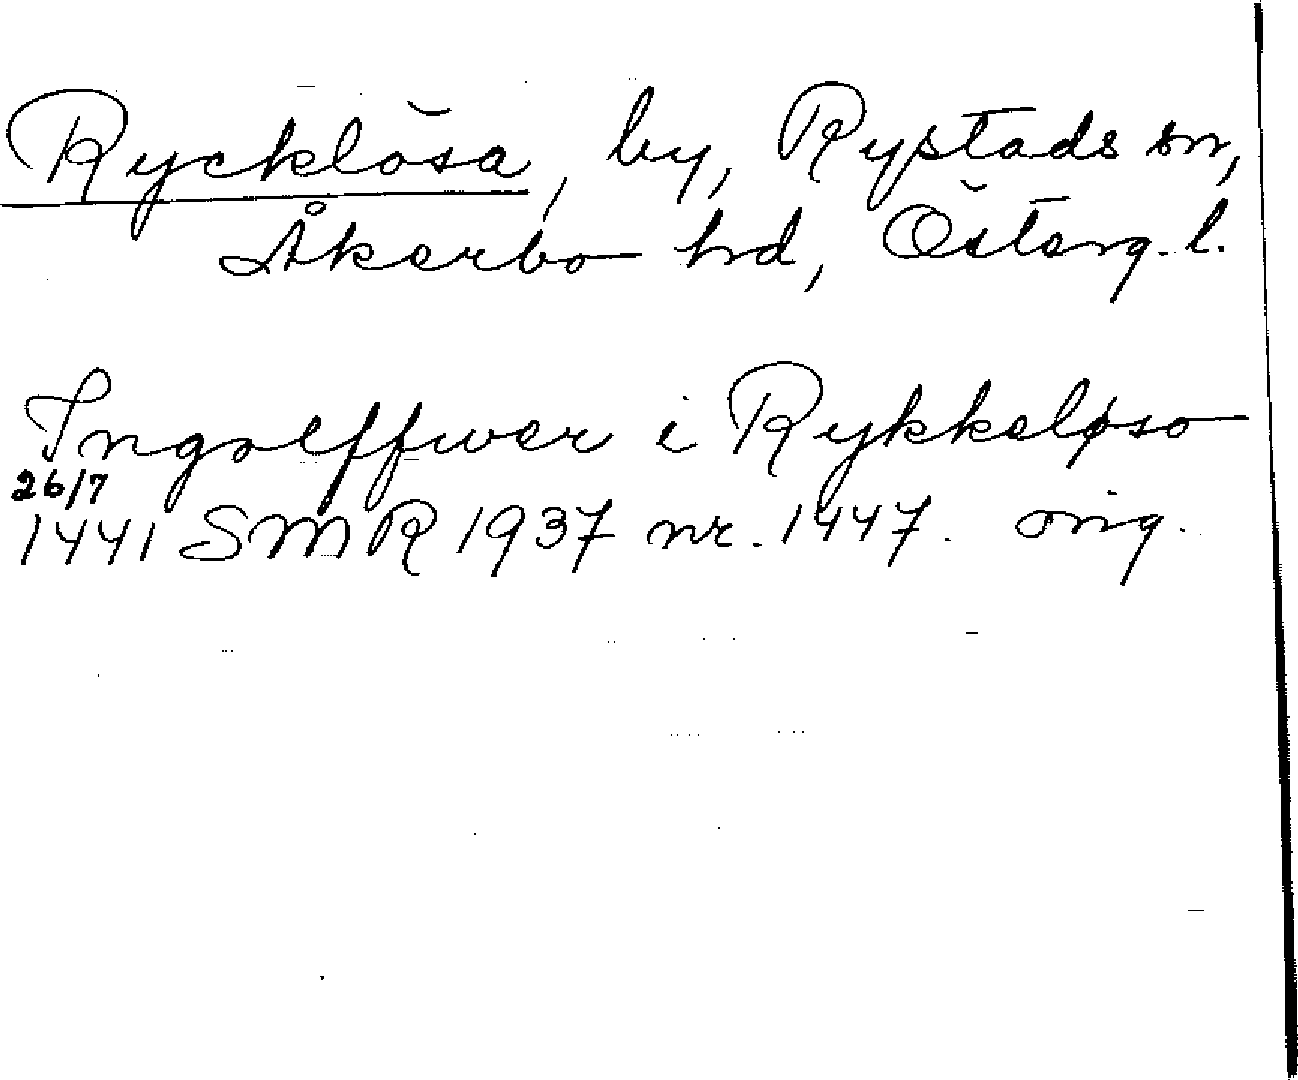 Rycklösa, by, Rystads sn,
Åkerbo hd, Österg. l.
Ingolffwer i Rykkeløso
26/7
1441 SMR 1937 nr. 1447. orig.